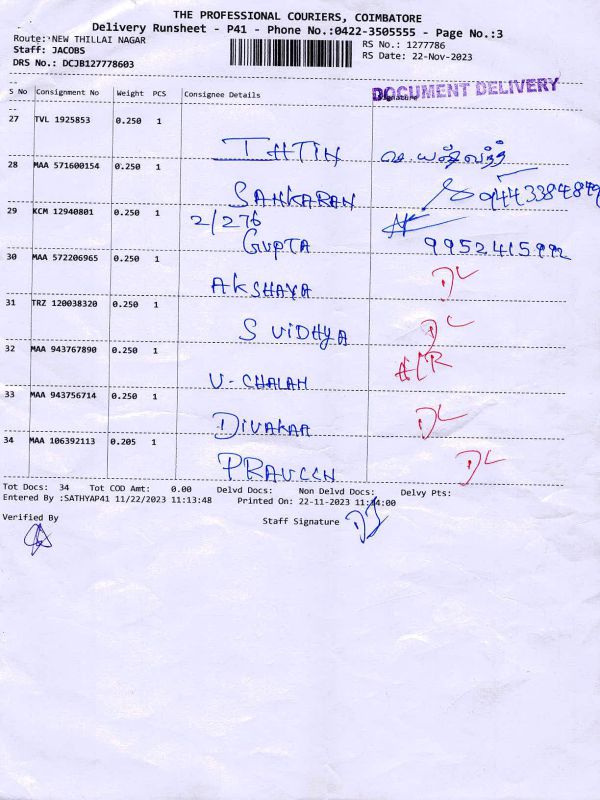 THE PROFESSIONAL COURIERS, COIMBATORE
Delivery Runsheet - P41 - Phone No.:0422-3505555 - Page No.:3
Route: NEW THILLAI NAGAR
RS No.: 1277786
Staff: JACOBS
RS Date: 22-Nov-2023
DRS No.: DCJB127778603
DOCUMENT DELIVERY
S No Consignment No Weight PCS Consignee Details Signature
27 TVL 1925853 0.250 1
28 MAA 571600154 0.250 1
SANKARAN 9443384849
29 KCM 12940801 0.250 1 2/276
GUPTA 9952415992
30 MAA 572206965 0.250 1
AKSHAYA DL
31 TRZ 120038320 0.250 1
S VIDHYA DL
32 MAA 943767890 0.250 1
V-CHALAH
33 MAA 943756714 0.250 1
DIVAKAA DL
34 MAA 106392113 0.205 1
PRAVEEN DL
Tot Docs: 34 Tot COD Amt: 0.00 Delvd Docs: Non Delvd Docs: Delvy Pts:
Entered By :SATHYAP41 11/22/2023 11:13:48 Printed On: 22-11-2023
Verified By Staff Signature